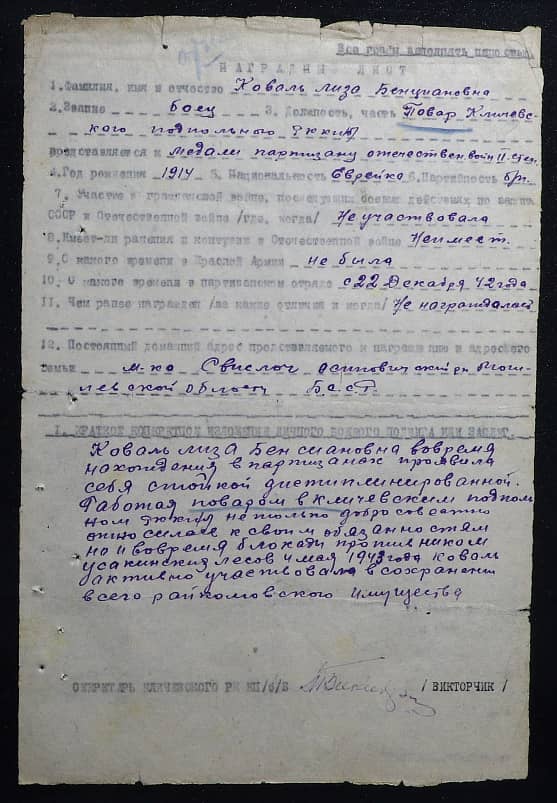 Все графы заполнять
НАГРАДНЫЙ ЛИСТ
1. Фамилия, имя и отчество Коваль Лиза Бенциановна
2. Звание боец 3. Должность, часть Повар Кличевс-
кого подпольного РККПб
представляется к медали партизану отечествен. войн II. степ.
4. Год рождения 1914 5. Национальность Еврейка 6. Партийность б/п.
7. Участие в гражданской войне, последующих боевых действиях по защите
СССР и Отечественной войне /где, когда/ Не участвовала
8. Имеет-ли ранения и контузии в Отечественной войне Неимеет.
9. С какого времени в Красной Армии не была
10. С какого времени в партизанском отряде с 22 Декабря 42 года
11. Чем ранее награжден /за какие отличия и когда/ Не награждалась
12. Постоянный домашний адрес представляемого к награждению и адрес его
семьи м-ко Свислоч Осиповичский рн Моги-
левской области Б.С.С.Р.
I. КРАТКОЕ КОНКРЕТНОЕ ИЗЛОЖЕНИЕ ЛИЧНОГО БОЕВОГО ПОДВИГА ИЛИ ЗАСЛУГ.
Коваль Лиза Бенсиановна вовремя
нахождения в партизанах проявила
себя стойкой дистиплинированной.
Работая поваром в Кличевским подпол
ном РККПб не только добросовестно
относилась к своим обязанностям
но и вовремя блокады противником
усакинских лесов 4 мая 1943 года Коваль
активно участвовала в сохранении
всего райкомовского имущества
СЕКРЕТАРЬ КЛИЧЕВСКОГО РК КП/б/Б /ВИКТОРЧИК/